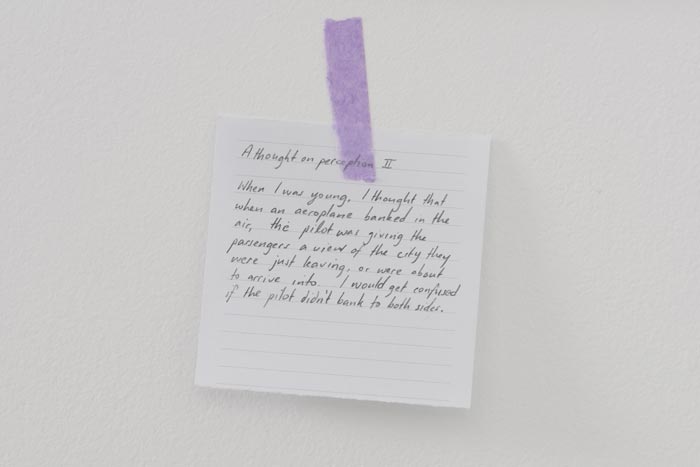 A thought on perception II
When I was young, I thought that
when an aeroplane banked in the
air, the pilot was giving the
passengers a view of the city they
were just leaving, or were about
to arrive into. I would get confused
if the pilot didn't bank to both sides.